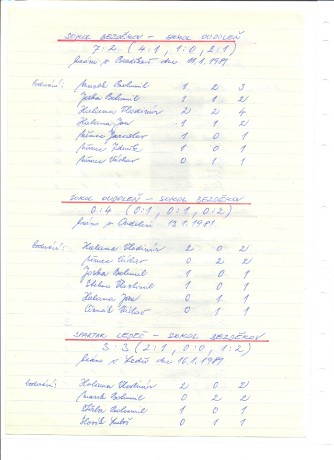 SOKOL BEZDĚKOV - SOKOL OUDOLEŇ
7:2 (4:1, 1:0, 2:1)
hráno v          dne 11.1.1981
bodování: Marek Bohumil 1 2 3
Joska Bohumil 1 1 2
Halama Vladimír 2 2 4
Halama Jan 1 1 2
Jaroslav 1 0 1
Zdeněk 1 0 1
Václav 0 1 1
SOKOL OUDOLEŇ - SOKOL BEZDĚKOV
0:4 (0:1, 0:1, 0:2)
hráno v Oudoleni 13.1.1981
bodování: Halama Vladimír 2 0 2
Václav 0 2 2
Joska Bohumil 1 0 1
Vlastimil 1 0 1
Halama Jan 0 1 1
Václav 0 1 1
SPARTAK LEDEČ - SOKOL BEZDĚKOV
3:3 (2:1, 0:0, 1:2)
hráno v Ledči dne 16.1.1981
bodování: Halama Vladimír 2 0 2
Marek Bohumil 0 2 2
Bohumil 1 0 1
Luboš 0 1 1